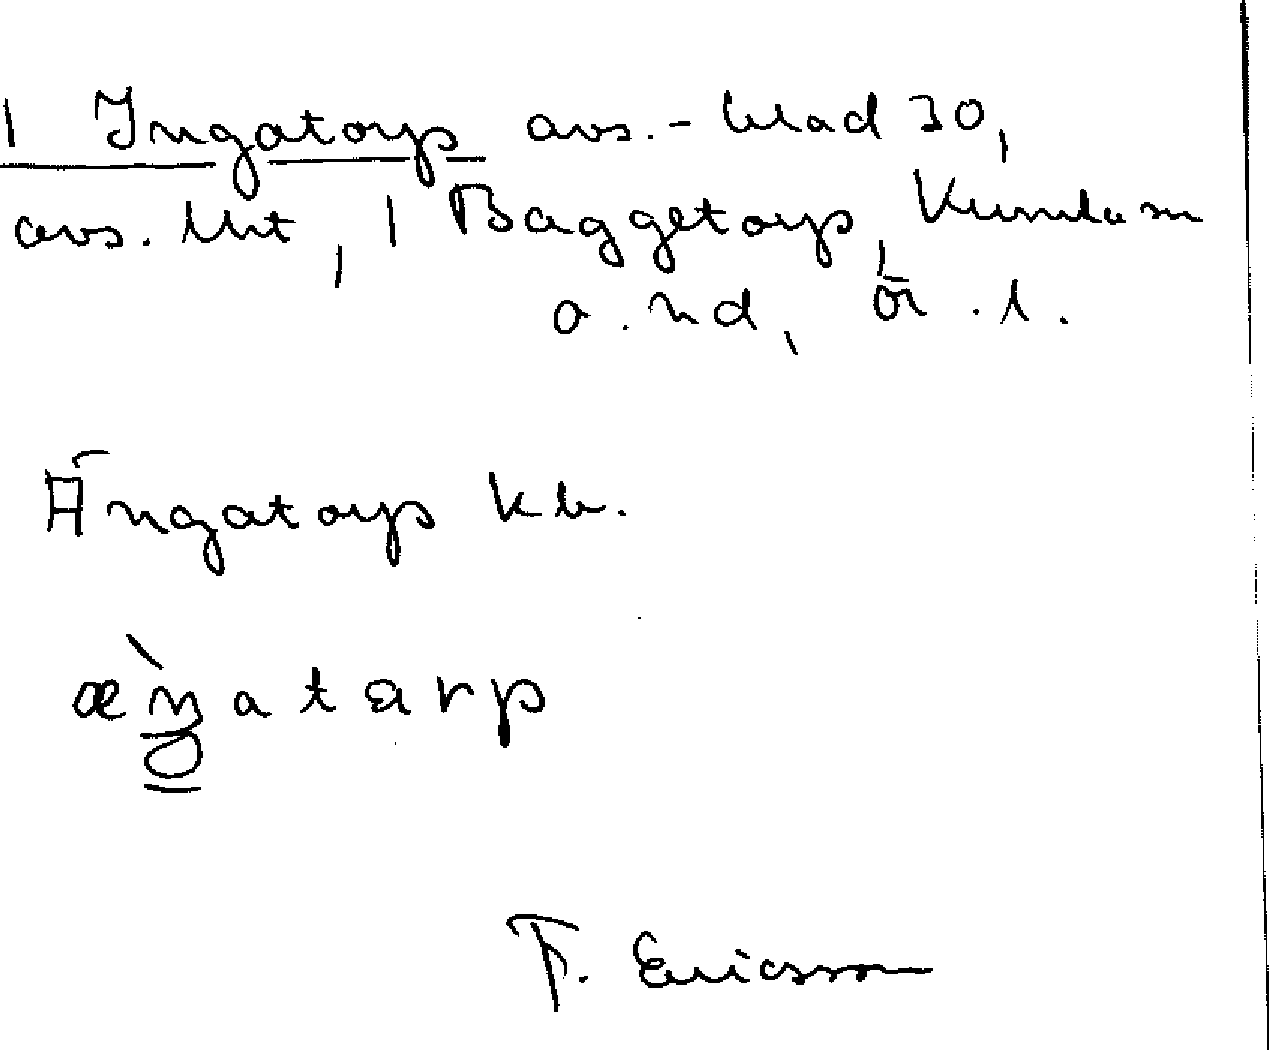 1 Ingatorp avs.-blad 30,
avs. Utt, 1 Baggetorp, Kumla sn
o. hd, Ör. l.
Ängatorp kb.
æ̀ŋatarp
F. Ericsson